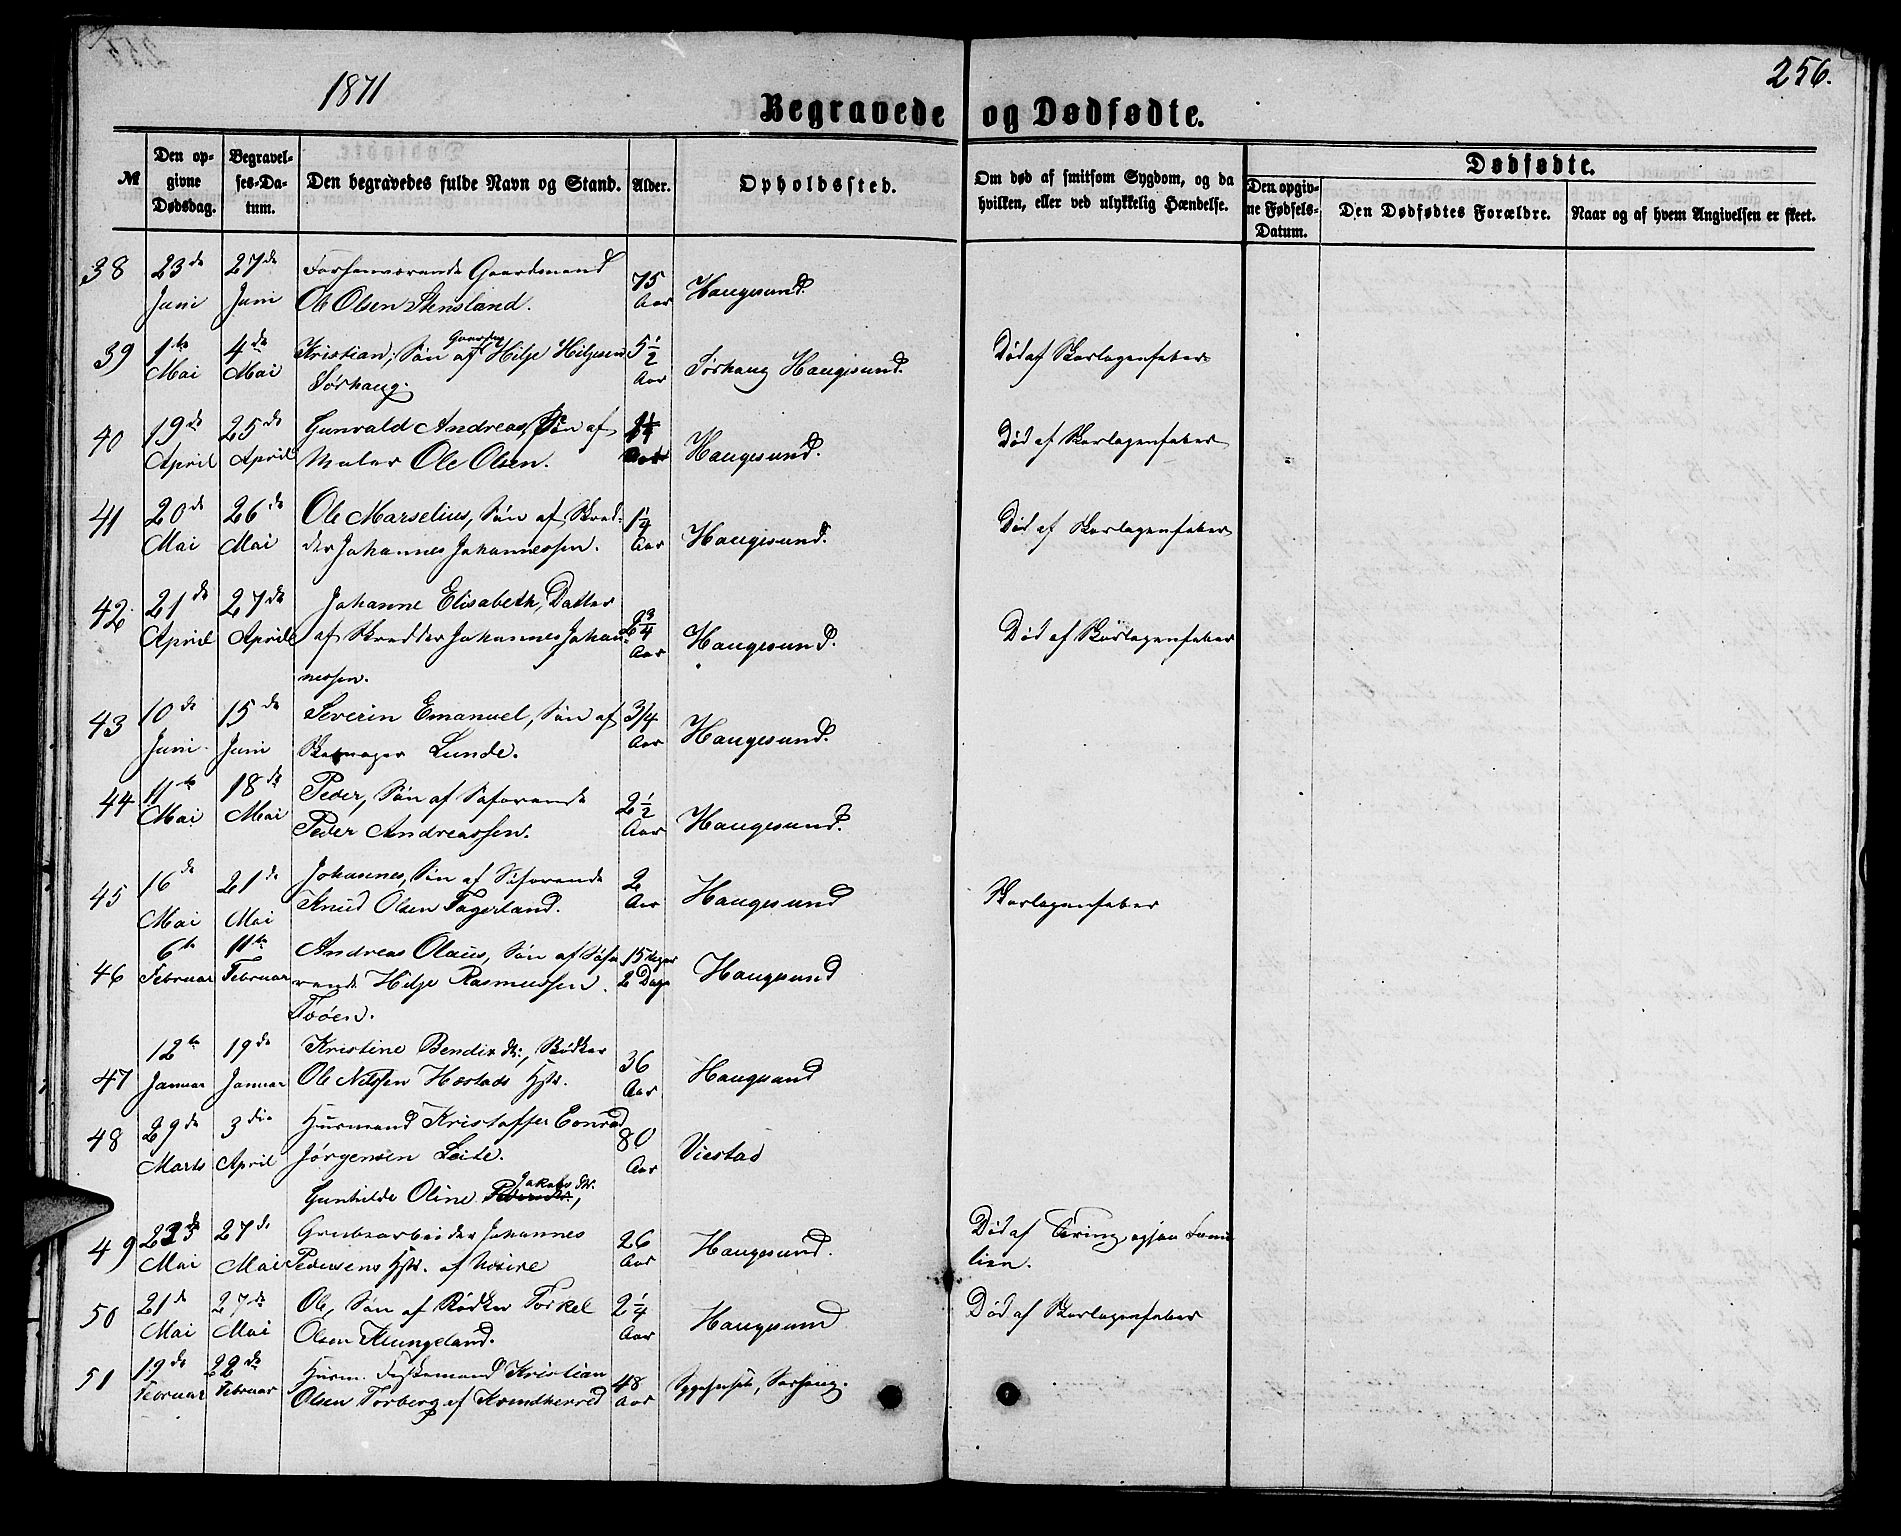 1871
256.
Begravede og Dødfødte.
№
Den opgivne Dødsdag.
Begravelses-Datum.
Den begravedes fulde Navn og Stand.
Alder.
Opholdssted.
Om død af smitsom Sygdom, og da hvilken, eller ved ulykkelig Hændelse.
Dødfødte.
Den opgivne Fødsels-Datum.
Den Dødfødtes Forældre.
Naar og af hvem Angivelsen er skeet.
38 23de 27de Forhenværende Gaardmand 75
Juni Juni Ole Olsen Stensland. Aar Haugesund.
39 1te 4de Kristian, Søn af Hilje Hiljesen 5½ Død af Skarlagensfeber
Mai Mai Sørhaug. Aar Sørhaug Haugesund.
40 19de 25de Gunvald Andreas, Søn af Død af Skarlagensfeber
April April Maler Ole Olsen. Haugesund.
41 20de 26de Ole Marselius, Søn af Skred- 1¼ Død af Skarlagensfeber
Mai Mai der Johannes Johannessen. Aar Haugesund.
42. 21de 27de Johanne Elisabeth, Datter 2¾
April April af Skredder Johannes Johan- Aar Haugesund. Død af Skarlagensfeber
nessen.
43 10de 15de Severin Emanuel, Søn af 3/4
Juni Juni Skomager Lunde. Aar Haugesund.
44 11te 18de Peder, Søn af Søfarende 2½
Mai Mai Peder Andreassen. Aar Haugesund.
45 16de 21de Johannes, Søn af Søfarende 2
Mai Mai Knud Olsen Fagerland. Aar Haugesund Skarlagensfeber
46 6te 11te Andreas Olaus, Søn af Søfa 15 Uger
Februar Februar rende Hilje Rasmussen 2 Dage Haugesund
47 12te 19de Kristine Bendixdr:, Bødker 36
Januar Januar Ole Nilssen Hæstads Hstr. Aar Haugesund
48 29de 3die Husmand Kristoffer Conrad 80
Marts April Jørgensen Leite. Aar Viestad
Gunhilde Oline Jakobsdtr.
49 23de 27de Grubearbeider Johannes 26 Død af Tæring
Mai Mai Pedersens Hstr. Aar Haugesund. lien.
50 21de 27de Ole, Søn af Bødker Torkel 2¼ Død af Skarlagensfeber
Mai Mai Olsen Klungeland. Aar Haugesund
51 19de 22de Husm. Kristian 48
Februar Februar Olsen Torberg af Aar